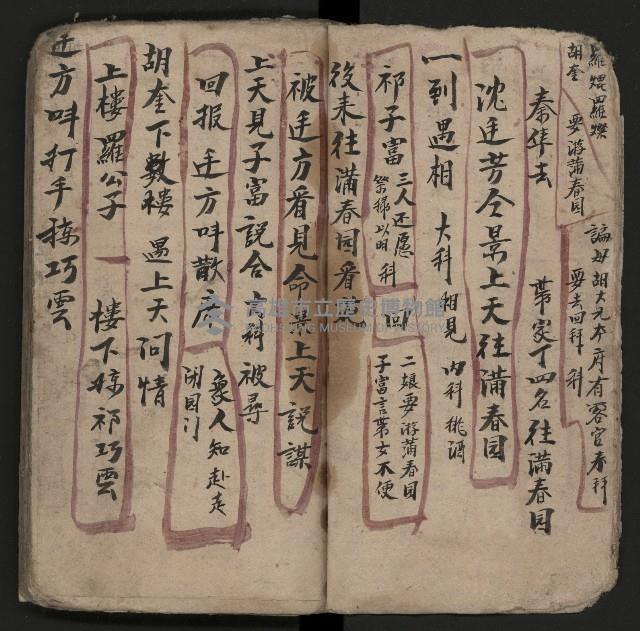 羅焜羅燦
胡奎
要游蒲春园
論母胡大元本府有客官春拜
要去回拜 科
秦隼去
帶家丁四名往滿春园
沈廷芳仝景上天往满春园
一到遇相 大科相見 内科 桃酒
祁子富 三人还愿
祭掃以明 科
回
二娘要游蒲春园
子富言帶女不便
後来往满春园看
被廷方看見命重上天說謀
上天見子富說合 大科 被尋
回报 廷方呌散 衆人知赴走
闭园门
胡奎下數楼 遇上天问情
上楼羅公子 一 楼下搶祁巧雲
廷方呌打手搶巧雲
高雄市立歷史博物館
KAOHSIUNG MUSEUM OF HISTORY